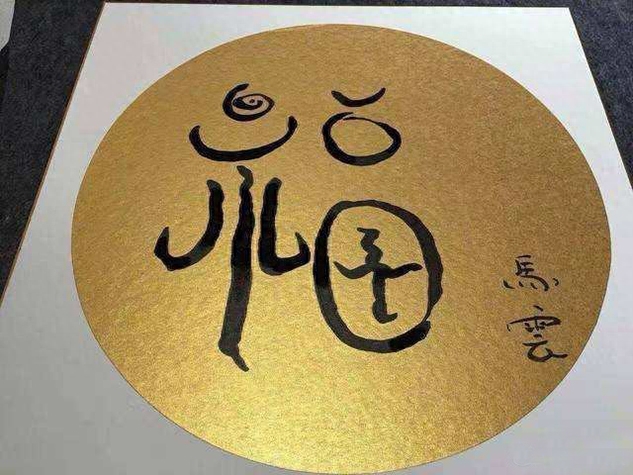 福
馬雲